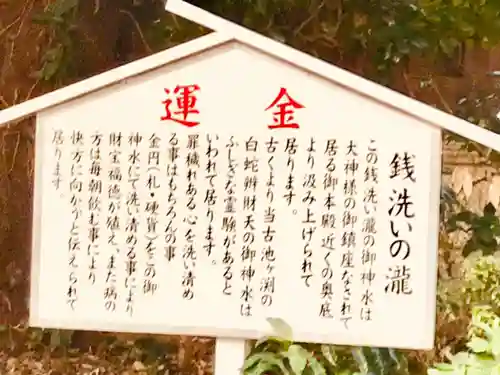 金運
銭洗いの瀧
この銭洗い瀧の御神水は
大神様の御鎮座なされて
居る御本殿近くの奥底
より汲み上げられて
居ります。
古くより当古池ヶ渕の
白蛇辨財天の御神水は
ふしぎな霊験があると
いわれて居ります。
罪穢れある心を洗い清め
る事はもちろんの事
金円（札・硬貨）をこの御
神水にて洗い清める事により
財宝福徳が殖え、また病の
方は毎朝飲む事により
快方に向かうと伝えられて
居ります。